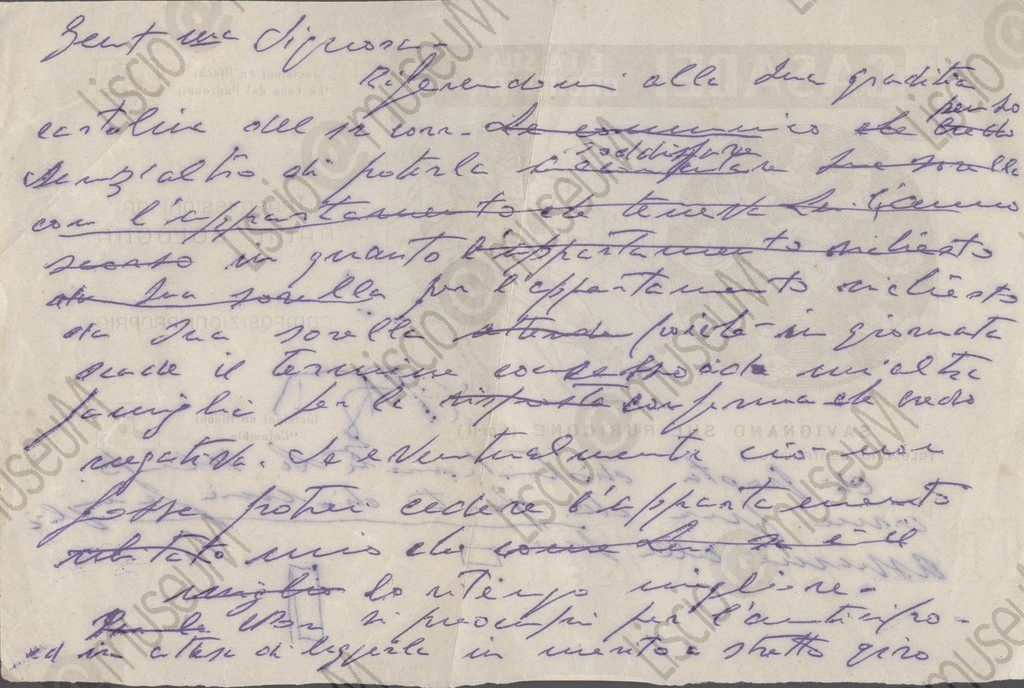 Gent ma Signora.
Riferendomi alla Sua gradita
cartolina del 12 corr. Le comunico che credo penso
senz'altro di poterla soddisfare Sua sorella
con l'appartamento che teneva Lei l'anno
scorso in quanto l'appartamento richiesto
da Sua sorella per l'appartamento richiesto
da Sua sorella attendo poiché in giornata
scade il termine concesso ad un'altra
famiglia per la risposta conferma che credo
negativa. Se eventualmente ciò non
fosse potrei cedere l'appartamento
mio che come Lei sa è il
meglio lo ritengo migliore.
Non si preoccupi per l'anticipo.
ed in attesa di leggerla in merito a stretto giro
SAVIGNANO SUL RUBICONE (Forlì)
@museuM Liscio@museuM